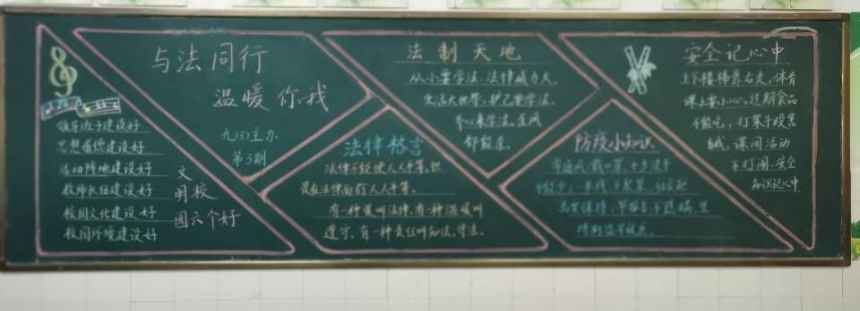 与法同行
温暖你我
九(3)主办
第3期
领导班子建设好
思想道德建设好
活动阵地建设好
教师队伍建设好
校园文化建设好
校园环境建设好
文
明校
园六个好
法律格言
法律不能使人人平等,但
是在法律面前人人平等。
有一种美叫法律,有一种温暖叫
遵守,有一种责任叫知法,守法。
法制天地
从小要学法,法律威力大。
生活大世界,护己要学法。
齐心来学法,歪风
都散尽。
防疫小知识
常通风,戴口罩,
安全记心中
上下楼梯靠右走,体育
课上要小心,过期食品
不能吃,打架斗殴害
自我,课间活动
不打闹,安全
知识记心中